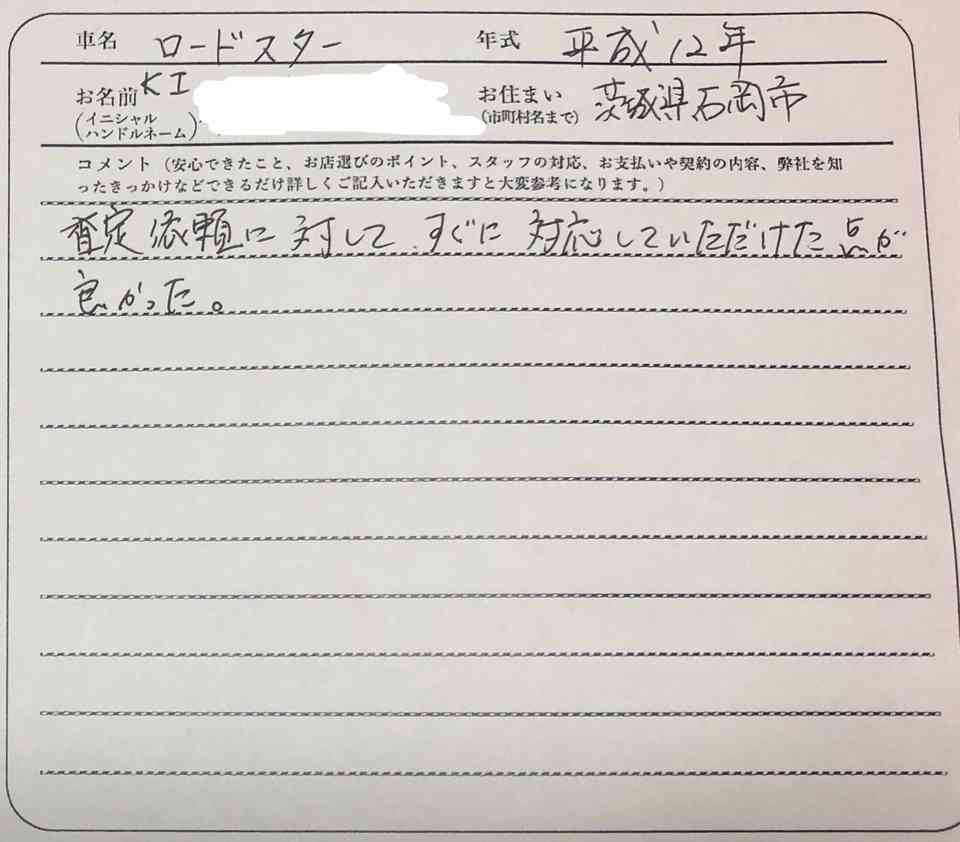 車名 ロードスター 年式 平成12年
お名前 KI お住まい 茨城県石岡市
(イニシャル (市町村名まで)
ハンドルネーム)
コメント(安心できたこと、お店選びのポイント、スタッフの対応、お支払いや契約の内容、弊社を知
ったきっかけなどできるだけ詳しくご記入いただきますと大変参考になります。)
査定依頼に対して、すぐに対応していただけた点が
良かった。